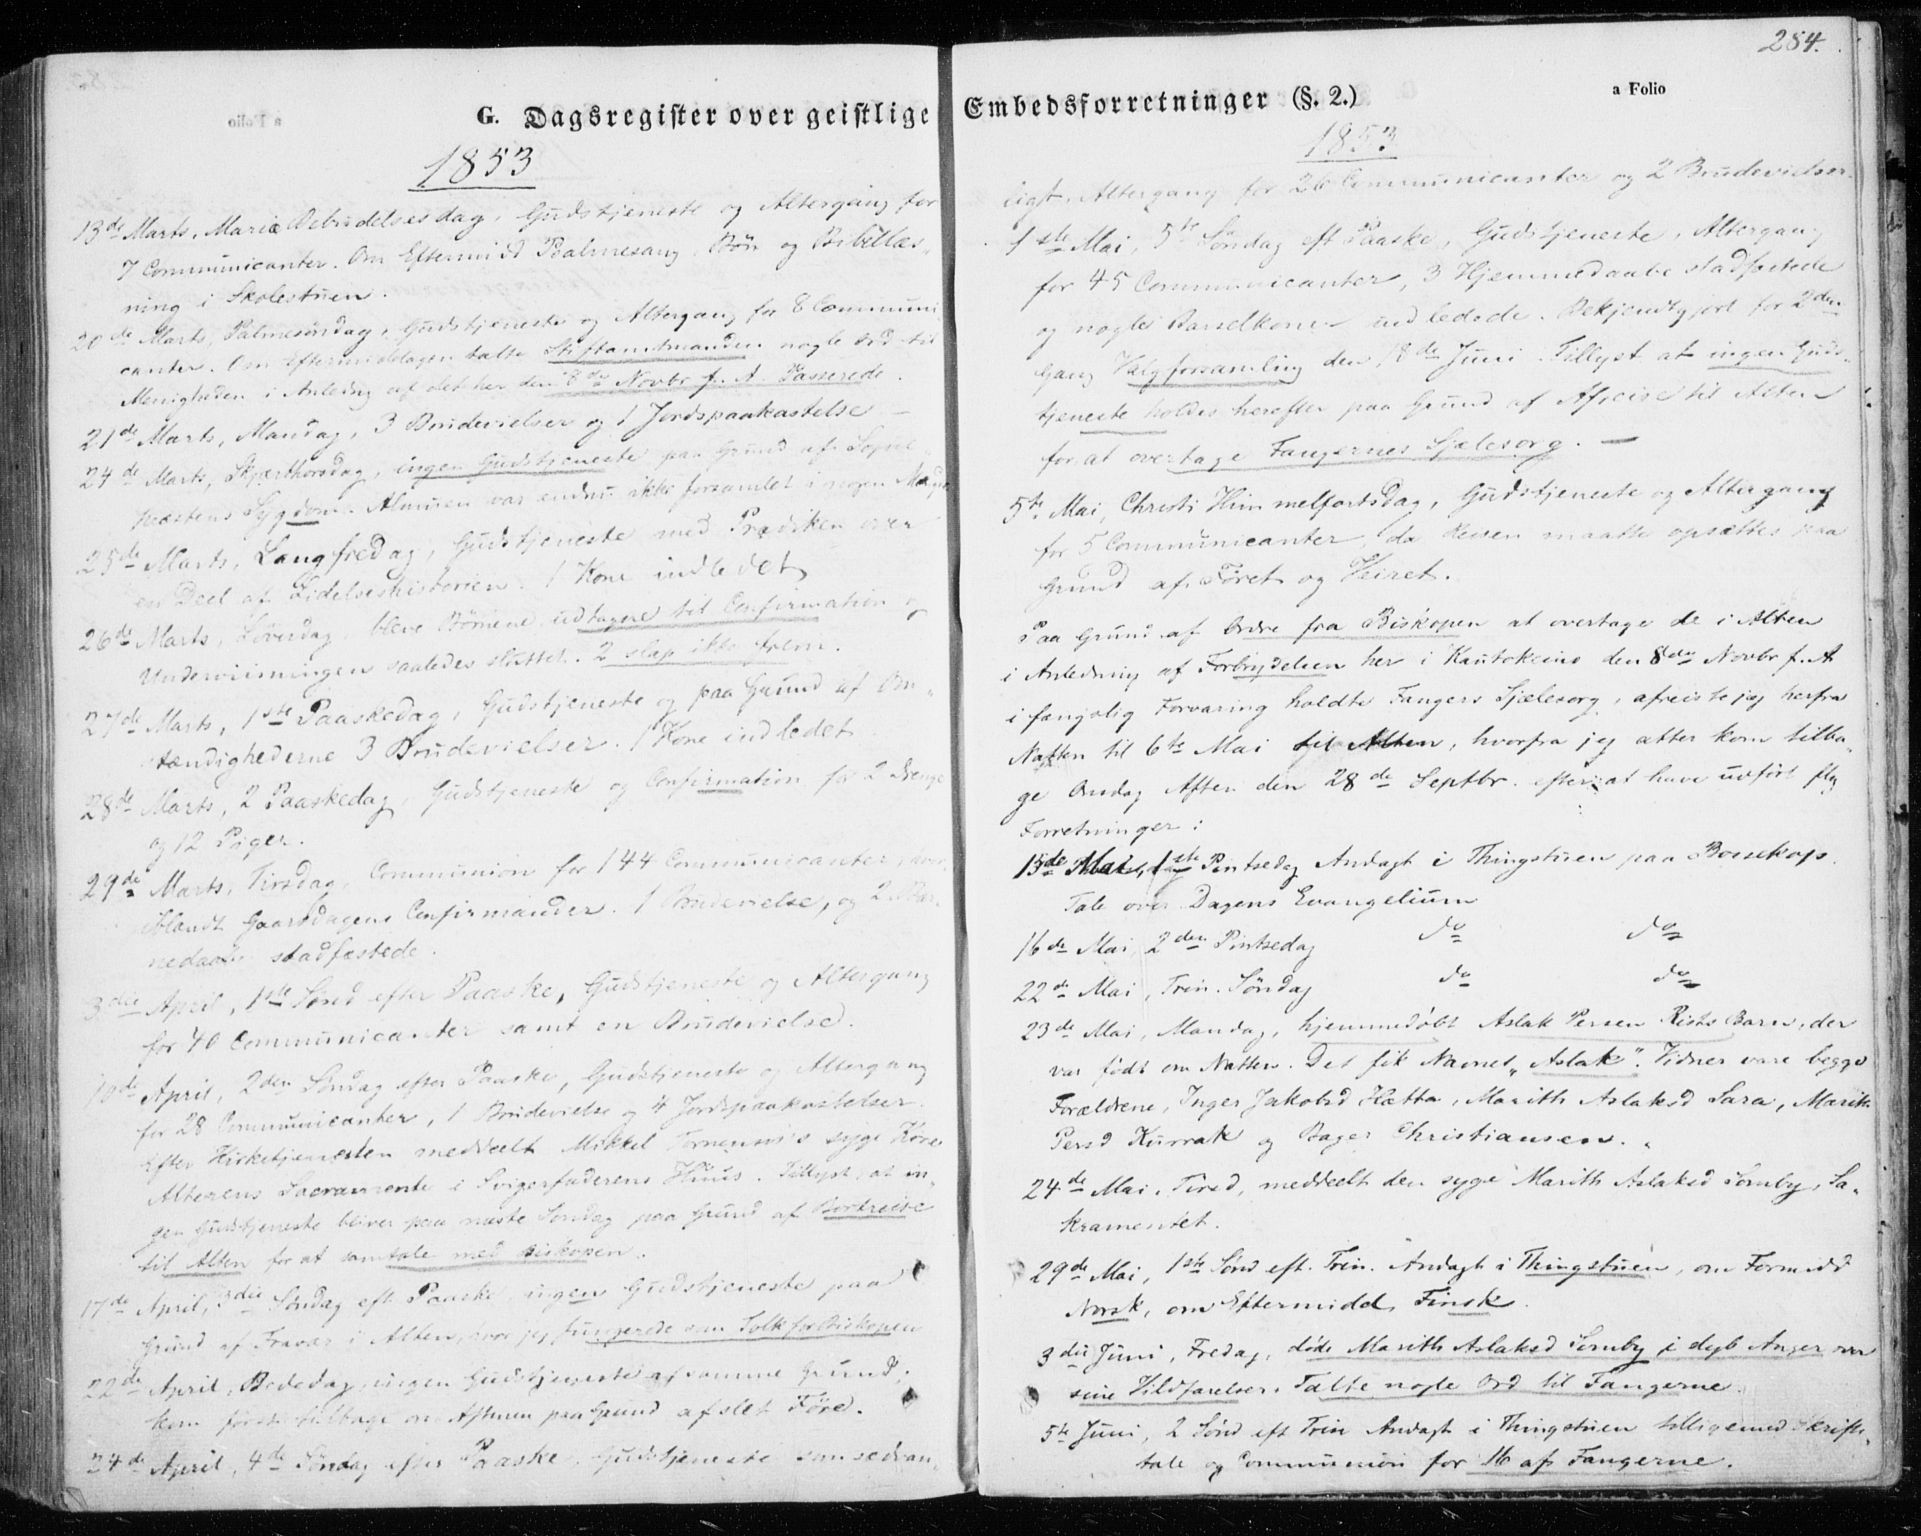 G. Dagsregister over geistlige
1853
13de Marts. Mariæ Bebudelsesdag, Gudstjeneste og Altergang for
7 Communicanter. Om Eftermidd Psalmesang, Bön og Bibellæs-
ning i Skolestuen.
20de Marts, Palmesöndag, Gudstjeneste og Altergang for 8 Communi
canter. Om Eftermiddagen talte Stiftamtmanden nogle Ord til
Menigheden i Anledng af det her den 8de Novbr f. A. Passerede.
21de Marts, Mandag, 3 Brudevielser og 1 Jordspaakastelse –
24de Marts, Skjærthorsdag, ingen Gudstjeneste paa Grund af Sogne-
præstens Sygdom. Almuen var endnu ikke forsamlet i nogen
25de Marts, Langfredag, Gudstjeneste med Prædiken over
en Deel af Lidelseshistorien. 1 Kone indledet
26de Marts, Löverdag bleve Börnene udtagne til Confirmation og
Underviisningen saaledes sluttet. 2 slap ikke frem.
27de Marts, 1ste Paaskedag, Gudstjeneste og paa Grund af Om-
stændighederne 3 Brudevielser. 1 Kone indledet
28de Marts, 2 Paaskedag, Gudstjeneste og Confirmation for 2 Drenge
og 12 Piger.
29de Marts, Tirsdag, Communion for 144 Communicanter,
iblandt Gaarsdagens Confirmander. 1 Brudevielse, og 2
stadfæstede.
3die April, 1ste Sönd efter Paaske, Gudstjeneste og Altergang
for 40 Communicanter samt en Brudevielse.
10de April, 2den Söndag efter Paaske, Gudstjeneste og Altergang
for 28 Communicanter, 1 Brudevielse og 4 Jordspaakastelser.
Efter Kirketjenesten meddeelt Mikkel Tornensis's syge Kone
Alterens Sacramente i Svigerfaderens Huus. Tillyst, at in-
gen Gudstjeneste bliver paa næste Söndag paa Grund af Bortreise
til Alten for at samtale med Biskopen.
17de April, 3die Söndag eft Paaske ingen Gudstjeneste paa
Grund af Fravær i Alten, hvor jeg fungerede som Tolk for Biskopen
22de April, Bededag ingen Gudstjeneste af samme Grund,
kom först tilbage om Aftenen paa Grund af slet Före.
24de April, 4de Söndag efter Paaske, Gudstjeneste som sædvan-
284.
Embedsforretninger (§. 2.)
a Folio
1853
ligt. Altergang for 26 Communicanter og 2 Brudevielser.
1ste Mai, 5te Söndag eft Paaske, Gudstjeneste, Altergang
for 45 Communicanter, 3 Hjemmedaabe stadfæstede
og nogle Barselkoner indledede. Bekjendtgjort for 2den
Gang Valgforsamling den 18de Juni. Tillyst at ingen Guds-
tjeneste holdes herefter paa Grund af Afreise til Alten
for at overtage Fangernes Sjælesorg. —
5te Mai, Christi Himmelfartsdag, Gudstjeneste og Altergang
for 5 Communicanter, da Reisen maatte opsættes paa
Grund af Föret og Veiret.
Paa Grund af Ordre fra Biskopen at overtage de i Alten
i Anledning af Forbrydelsen her i Kautokeino den 8de Novbr f. A
i fængslig Forvaring holdte Fangers Sjælesorg, afreiste jeg herfra
Natten til 6te Mai til Alten, hvorfra jeg atter kom tilba-
ge Onsdag Aften den 28de Septbr. efter at have udfört flg
Forretninger:
15de Mai, 1ste Pintsedag Andagt i Thingstuen paa Bossekop.
Tale over Dagens Evangelium
16de Mai, 2den Pintsedag do do
22de Mai, Trin. Söndag do do
23de Mai, Mandag, hjemmedöbt Aslak Persen Rists Barn, der
var födt om Natten. Det fik Navnet „Aslak". Vidner vare begge
Forældrene, Inger Jakobsd Hætta, Marith Aslaksd Sara, Marith
Persd Kurrak og Bager Christiansen.
24de Mai, Tirsd, meddeelt den syge Marith Aslaksd Somby, Sa-
kramentet.
29de Mai, 1ste Sönd eft. Trin. Andagt i Thingstuen, om Formidd
Norsk, om Eftermidd Finsk.
3die Juni, Fredag, döde Marith Aslaksd Somby i dyb Anger over
sine Vildfarelser. Talte nogle Ord til Fangerne.
5te Juni, 2 Sönd eft Trin Andagt i Thingstuen tilligemed Skrifte-
tale og Communion for 16 af Fangerne.